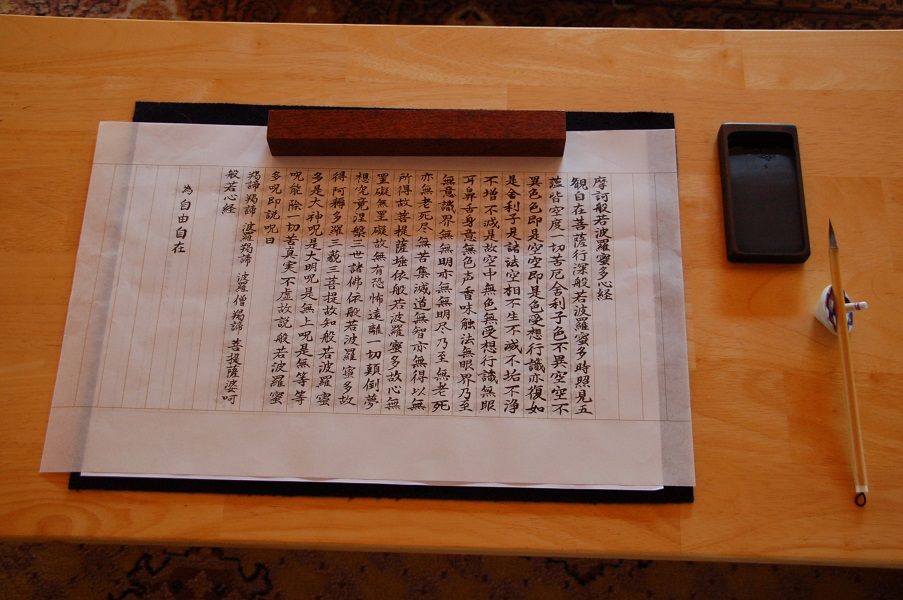 摩訶般若波羅蜜多心経
観自在菩薩行深般若波羅蜜多時照見五
蘊皆空度一切苦厄舎利子色不異空空不
異色色即是空空即是色受想行識亦復如
是舎利子是諸法空相不生不滅不垢不浄
不増不減是故空中無色無受想行識無眼
耳鼻舌身意無色声香味触法無眼界乃至
無意識界無無明亦無無明尽乃至無老死
亦無老死尽無苦集滅道無智亦無得以無
所得故菩提薩埵依般若波羅蜜多故心無
罣礙無罣礙故無有恐怖遠離一切顛倒夢
想究竟涅槃三世諸佛依般若波羅蜜多故
得阿耨多羅三藐三菩提故知般若波羅蜜
多是大神呪是大明呪是無上呪是無等等
呪能除一切苦真実不虚故説般若波羅蜜
多呪即説呪曰
羯諦羯諦 波羅羯諦 波羅僧羯諦 菩提薩婆呵
般若心経
為自由自在